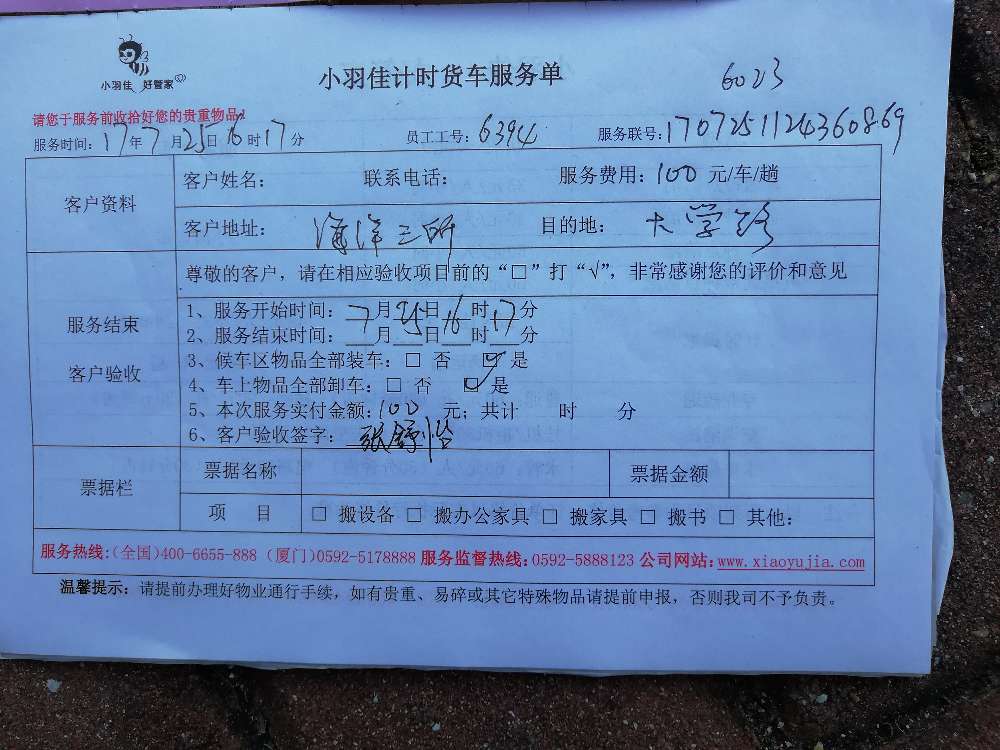 小羽佳 好管家
小羽佳计时货车服务单
6023
请您于服务前收拾好您的贵重物品!
服务时间: 17年7月25日16时17分 员工工号: 6394 服务联号: 1707251124360869
客户资料
客户姓名: 联系电话: 服务费用: 100 元/车/趟
客户地址: 海洋三所 目的地: 大学路
服务结束
客户验收
尊敬的客户，请在相应验收项目前的“□”打“√”，非常感谢您的评价和意见
1、服务开始时间: 7月25日16时17分
2、服务结束时间: __月__日__时__分
3、候车区物品全部装车: □ 否 ☑ 是
4、车上物品全部卸车: □ 否 ☑ 是
5、本次服务实付金额: 100 元; 共计 时 分
6、客户验收签字: 张舒怡
票据栏
票据名称 票据金额
项 目 □ 搬设备 □ 搬办公家具 □ 搬家具 □ 搬书 □ 其他:
服务热线:(全国)400-6655-888 (厦门)0592-5178888 服务监督热线:0592-5888123 公司网站:www.xiaoyujia.com
温馨提示: 请提前办理好物业通行手续，如有贵重、易碎或其它特殊物品请提前申报，否则我司不予负责。